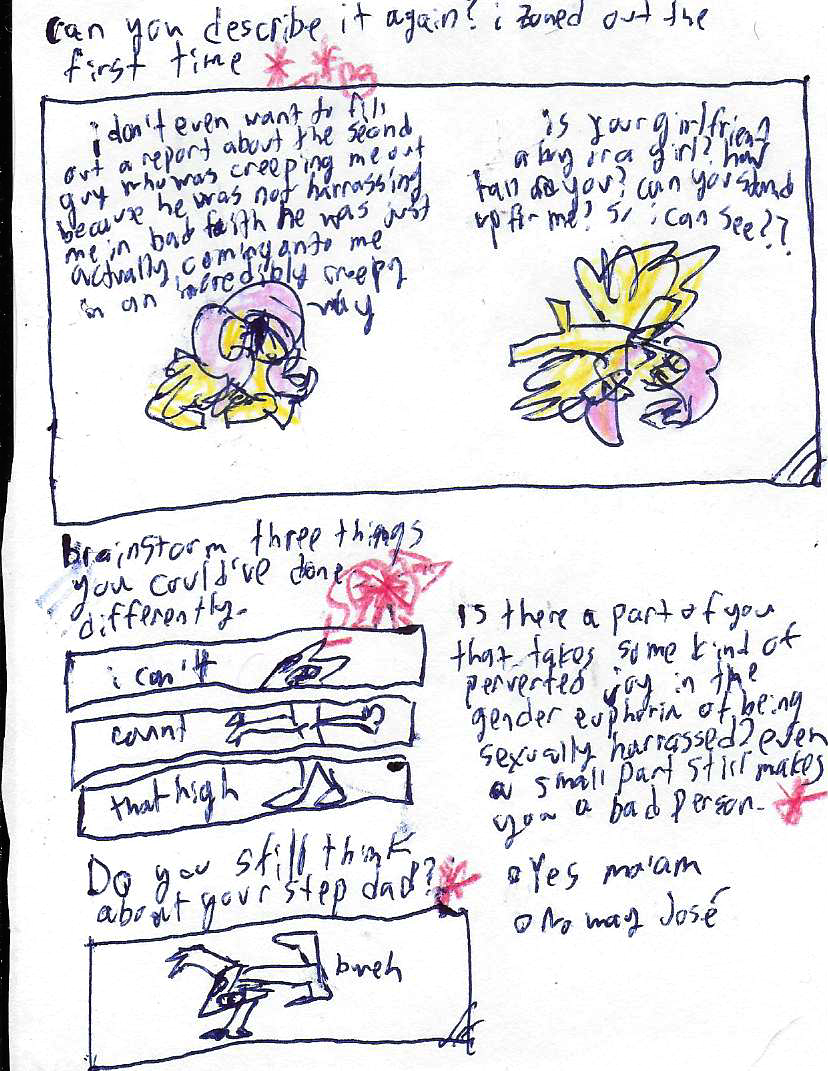 can you describe it again? i zoned out the
first time
i don't even want to fill
out a report about the second
guy who was creeping me out
because he was not harrassing
me in bad faith he was just
actually coming onto me
in an incredibly creepy
way
is your girlfriend
a boy or a girl? how
tall are you? can you stand
up for me? so i can see??
brainstorm three things
you could've done
differently.
i can't
count
that high
is there a part of you
that takes some kind of
perverted joy in the
gender euphoria of being
sexually harrassed? even
a small part still makes
you a bad person.
Yes ma'am
No way José
Do you still think
about your step dad?
bruh